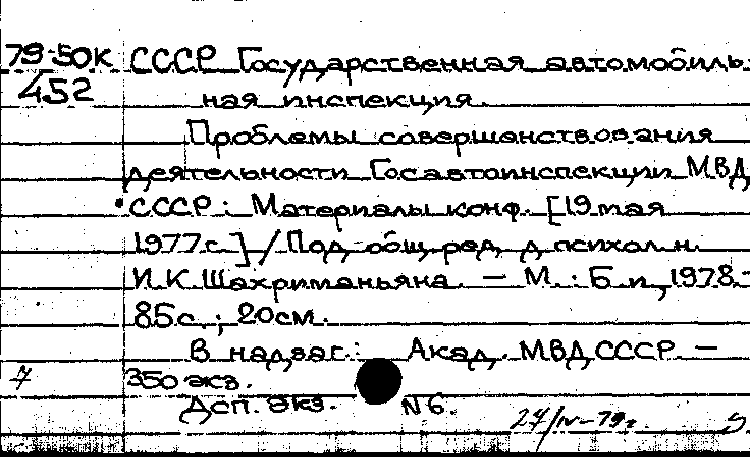 79-50К СССР Государственная автомобиль-
452 ная инспекция.
Проблемы совершенствования
деятельности Госавтоинспекции МВД
СССР: Материалы конф. [19 мая
1977 г.] / Под общ. ред. д. психол. н.
И.К. Шахриманьяна. – М.: Б. и., 1978. –
85 с.; 20 см.
В надзаг.: Акад. МВД СССР. –
7 350 экз.
Доп. экз. N 6.
24/IV-79г.